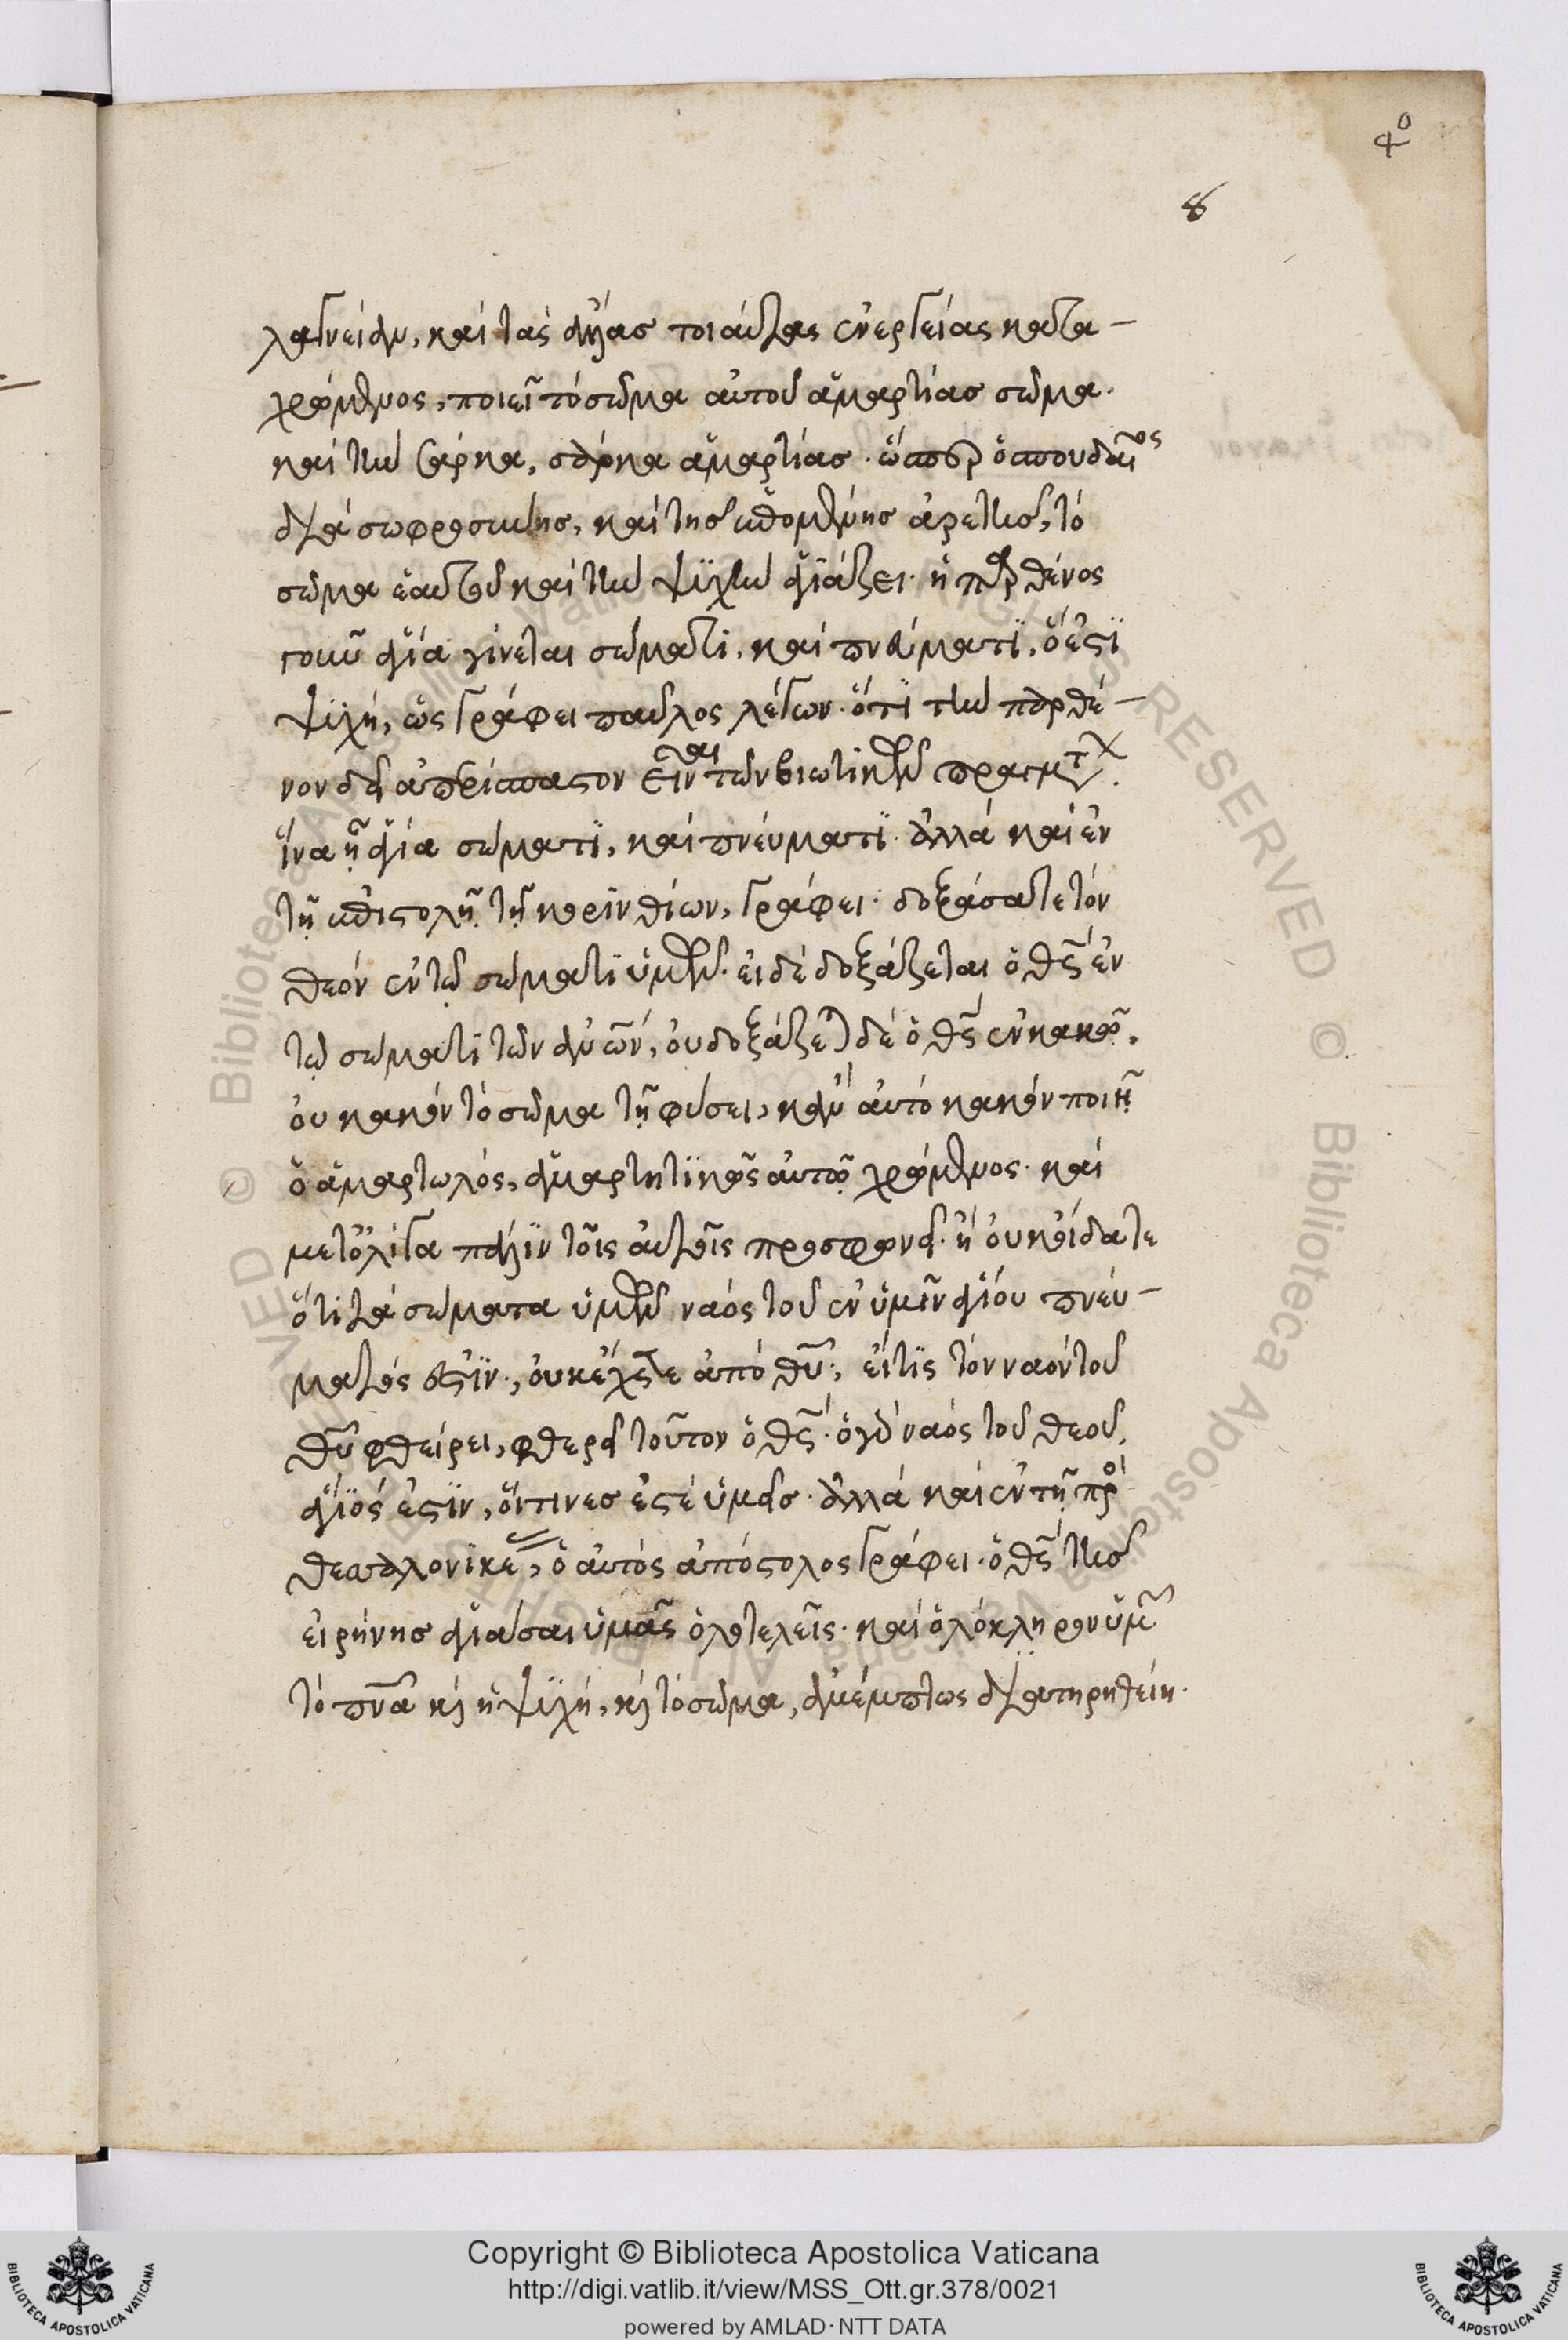 8
λαγνείαν, καὶ τὰς ἄλλας τοιαύτας ἐνεργείας κατα–
χρώμενος, ποιεῖ τὸ σῶμα αὐτοῦ ἁμαρτίας σῶμα.
καὶ τὴν σάρκα, σάρκα ἁμαρτίας. ὥσπερ ὁ σπουδαῖος
διὰ σωφροσύνης, καὶ τῆς ἑπομένης ἀρετῆς, τὸ
σῶμα ἑαυτοῦ καὶ τὴν ψϋχὴν ἁγιάζει. ἡ παρθένος
γοῦν ἁγία γίνεται σώματι, καὶ πνεύματϊ, ὅ ἐστϊ
ψϋχή, ὡς γράφει παῦλος λέγων. ὅτϊ τὴν παρθέ–
νον δεῖ ἀπερίσπαστον εἶναι τῶν βιωτικῶν πραγμάτων.
ἵνα ᾖ ἁγία σώματϊ, καὶ πνεύματϊ. ἀλλὰ καὶ ἐν
τῇ ἐπιστολῇ τῇ κορϊνθίων, γράφει. δοξάσατε τὸν
θεὸν ἐν τῷ σώματϊ ὑμῶν. εἰ δὲ δοξάζεται ὁ θς ἐν
τῷ σώματι τῶν ἁγίων, οὐ δοξάζεται δὲ ὁ θς ἐν κακῷ.
οὐ κακὸν τὸ σῶμα τῇ φύσει, κἂν αὐτὸ κακὸν ποιῇ
ὁ ἁμαρτωλός, ἁμαρτητϊκῶς αὐτῷ χρώμενος. καὶ
μετ' ὀλίγα πάλϊν τοῖς αὐτοῖς προσφωνεῖ. ἢ οὐκ οἴδατε
ὅτι τὰ σώματα ὑμῶν ναὸς τοῦ ἐν ὑμῖν ἁγίου πνεύ–
ματός ἐστϊν., οὗ κἔχετε ἀπὸ θυ; εἴ τϊς τὸν ναὸν τοῦ
θυ φθείρει, φθερεῖ τοῦτον ὁ θς. ὁ γὰρ ναὸς τοῦ θεοῦ,
ἅγϊός ἐστϊν, οἵτινες ἐστὲ ὑμεῖς. ἀλλὰ καὶ ἐν τῇ πρὸς
θεσσαλονϊκεῖς, ὁ αὐτὸς ἀπόστολος γράφει. ὁ θς τῆς
εἰρήνης ἁγιάσαι ὑμᾶς ὁλοτελεῖς. καὶ ὁλόκληρον ὑμῶν
τὸ πνα κὶ ἡ ψϋχή, κὶ τὸ σῶμα, ἀμέμπτως διατηρηθείη.
Copyright © Biblioteca Apostolica Vaticana
http://digi.vatlib.it/view/MSS_Ott.gr.378/0021
powered by AMLAD · NTT DATA